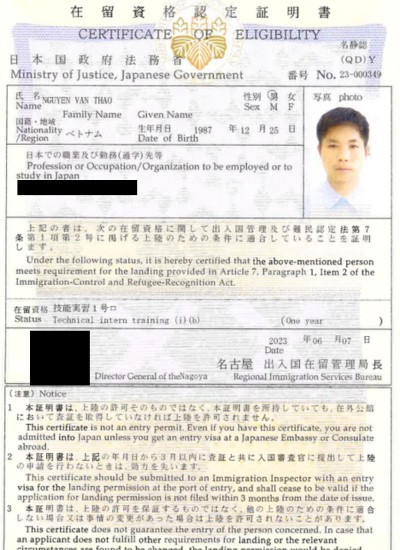 在留資格認定証明書
CERTIFICATE OF ELIGIBILITY
名静認
日本国政府法務省 (QD)Y
Ministry of Justice, Japanese Government 番号 No. 23-000349
氏名 NGUYEN VAN THAO 性別 男 女 写真 photo
Name Family Name Given Name Sex M F
国籍・地域 生年月日 1987 年 12 月 25 日
Nationality ベトナム Date of Birth
/Region
日本での職業及び勤務(通学)先等
Profession or Occupation/Organization to be employed or to
study in Japan
上記の者は、次の在留資格に関して出入国管理及び難民認定法第7
条第1項第2号に掲げる上陸のための条件に適合していることを証明
します。
Under the following status, it is hereby certified that the above-mentioned person
meets requirement for the landing provided in Article 7, Paragraph 1, Item 2 of the
Immigration-Control and Refugee-Recognition Act.
在留資格 技能実習1号ロ
Status Technical intern training (i)(b) (One year )
2023 年 06 月 07 日
Date
名古屋 出入国在留管理局長
Director General of the Nagoya Regional Immigration Services Bureau
(注意) Notice
1 本証明書は、上陸の許可そのものではなく、本証明書を所持していても、在外公館
において査証を取得していなければ上陸を許可されません。
This certificate is not an entry permit. Even if you have this certificate, you are not
admitted into Japan unless you get an entry visa at a Japanese Embassy or Consulate
abroad.
2 本証明書は、上記の年月日から3月以内に査証と共に入国審査官に提出して上陸
の申請を行わないときは、効力を失います。
This certificate should be submitted to an Immigration Inspector with an entry
visa for the landing permission at the port of entry, and shall cease to be valid if the
application for landing permission is not filed within 3 months from the date of issue.
3 本証明書は、上陸を保証するものではなく、他の上陸のための条件に適合
しない場合又は事情の変更があった場合は上陸を許可されないことがあります。
This certificate does not guarantee the entry of the person concerned. In case that
an applicant does not fulfill other requirements for landing or the relevant
circumstances are found to be changed, the landing permission would be denied